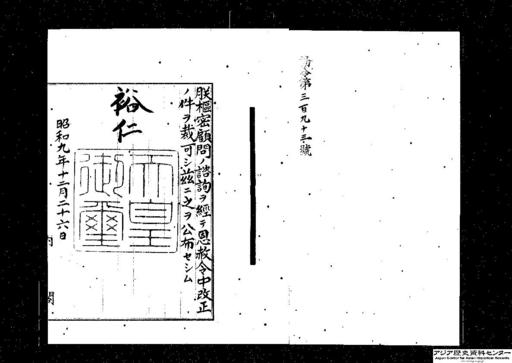 勅令第三百九十三號
朕樞密顧問ノ諮詢ヲ經テ恩赦令中改正
ノ件ヲ裁可シ茲ニ之ヲ公布セシム
裕仁
天皇
御璽
昭和九年十二月二十六日
内閣
アジア歴史資料センター
Japan Center for Asian Historical Records